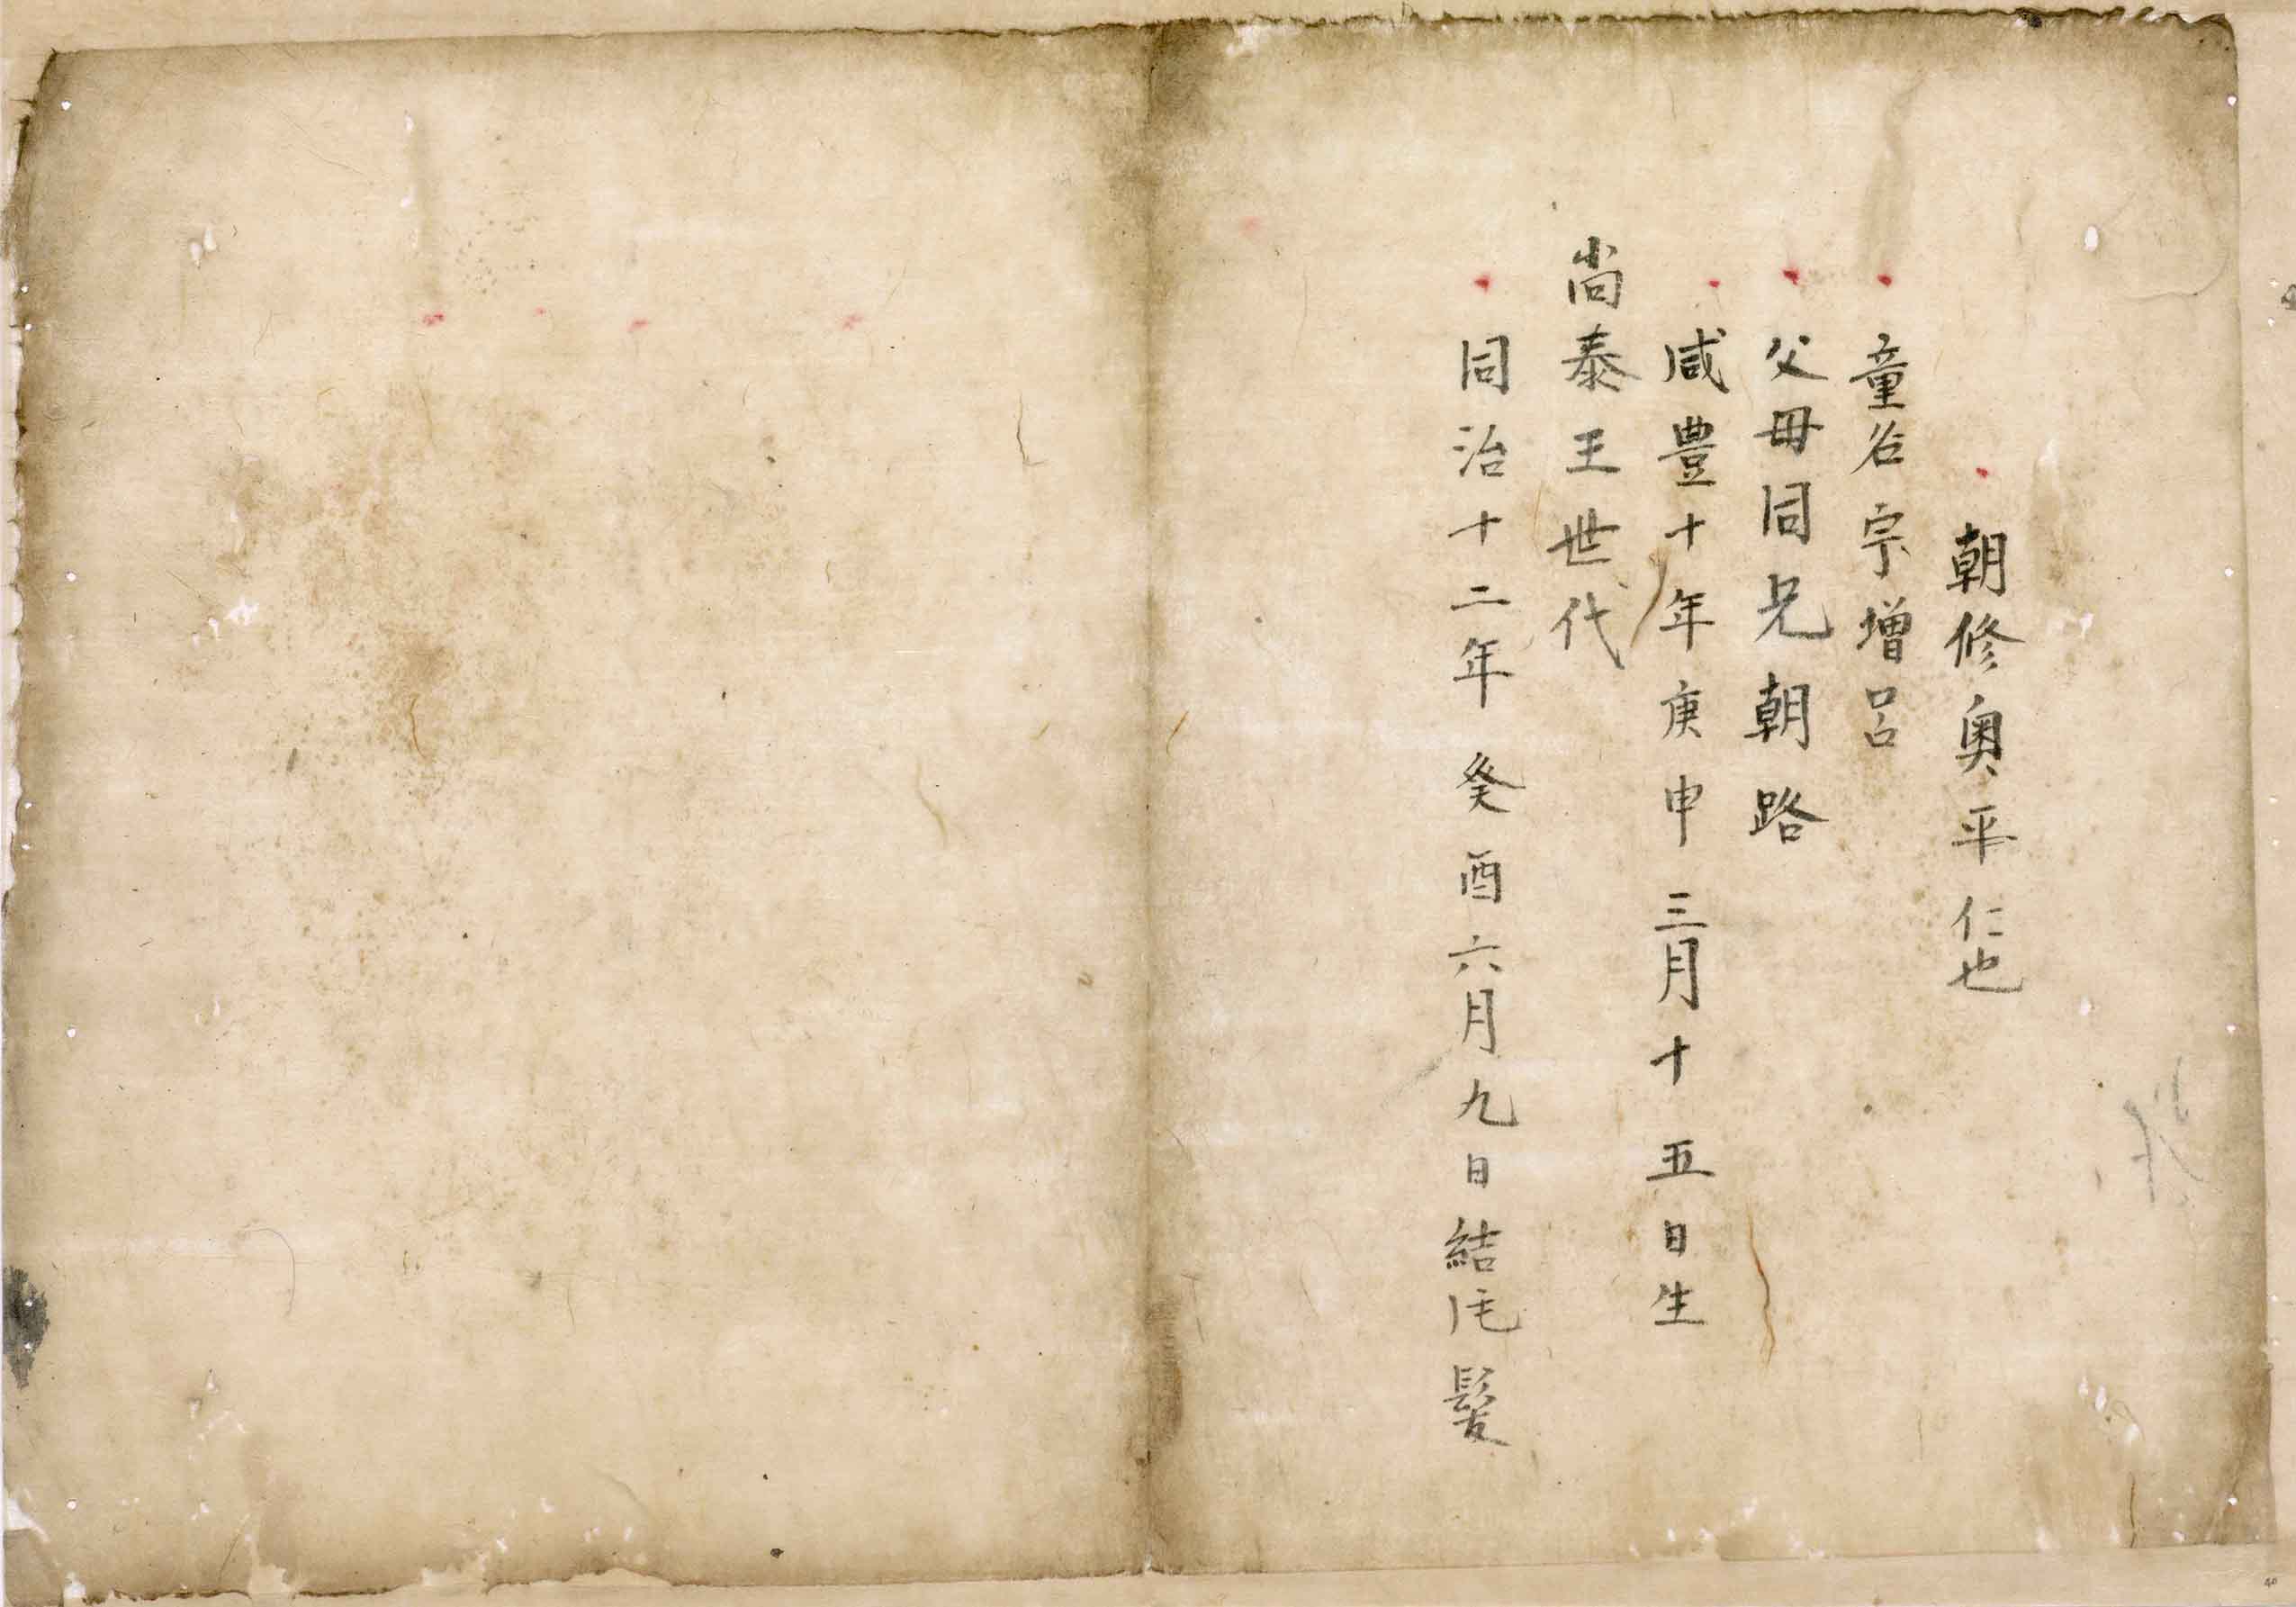 朝修奥平仁也
童名宗增呂
父母同兄朝路
咸豊十年庚申三月十五日生
尚泰王世代
同治十二年癸酉六月九日結髪